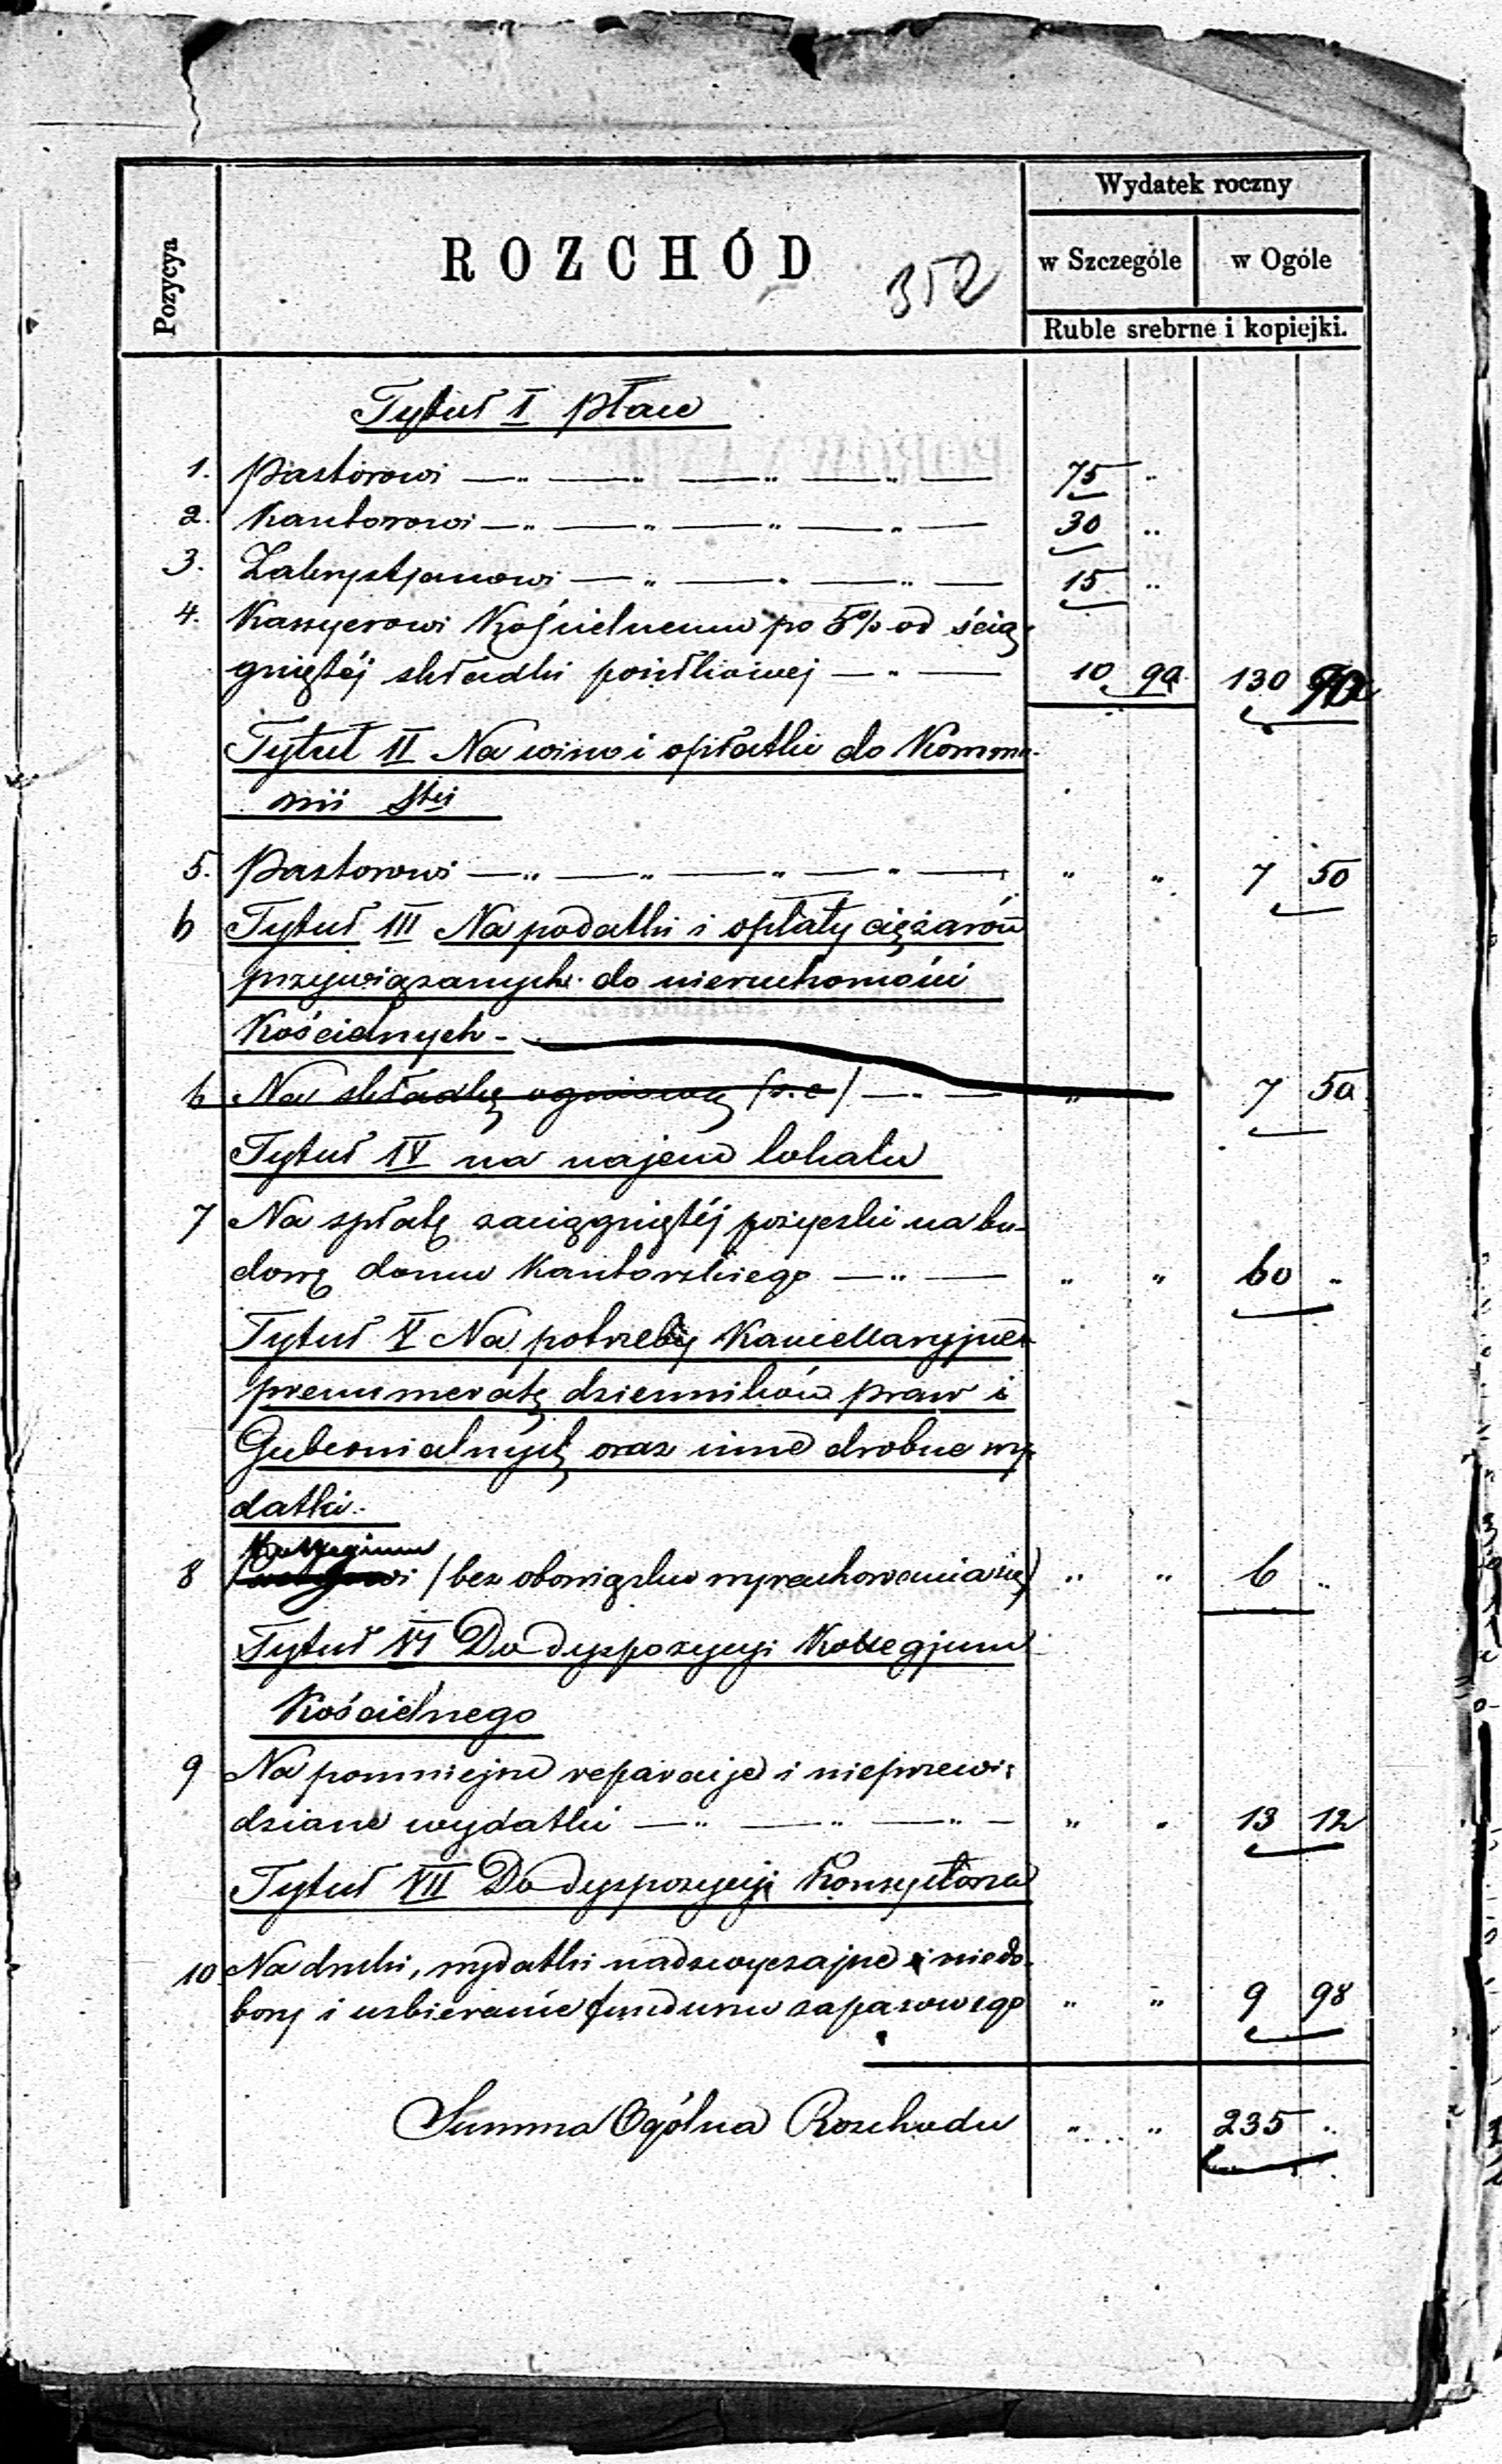 Pozycya
ROZCHÓD
352
Wydatek roczny
w Szczególe w Ogóle
Ruble srebrne i kopiejki.
Tytuł I Płace
1. Pastorowi —„ —„ —„ —„ — 75 „
2. Kantorowi —„ —„ —„ —„ — 30 „
3. Zakrystjanowi —„ —„ —„ — 15 „
4. Kassyerowi Kościelnemu po 5% od ścią-
gniętéj składki posiłkowej —„ — 10 90 130 90
Tytuł II Na wino i opłatki do Kommu-
nii Stéj
5. Pastorowi —„ —„ —„ —„ — „ „ 7 50
6 Tytuł III Na podatki i opłaty ciężarów
przywiązanych do nieruchomości
Kościelnych -
6 Na składkę ogniową (r.e) —„ — „ 7 50
Tytuł IV na najem lokalu
7 Na spłatę zaciągniętéj pożyczki na bu-
dowę domu Kantorskiego —„ — „ „ 60 „
Tytuł V Na potrzeby Kancellaryjne
prenumeratę dzienników praw i
Gubernialnych oraz inne drobne wy-
datki.
Kollegium
8 /bez obowiązku wyrachowania się/ „ „ 6 „
Tytuł VI Do dyspozycyi Kollegjum
Kościelnego
9 Na pomniejsze reparacije i nieprzewi-
dziane wydatki —„ —„ —„ — „ „ 13 12
Tytuł VII Do dyspozycyi Konsystorza
10 Na druki, wydatki nadzwyczajne i niedo-
bory i uzbieranie funduszu zapasowego „ „ 9 98
Summa Ogólna Rozchodu „ „ 235 „